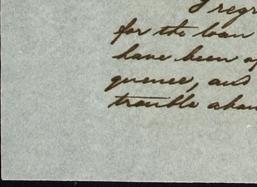 I regr
for the loan
have been of
quence, and
trouble abou